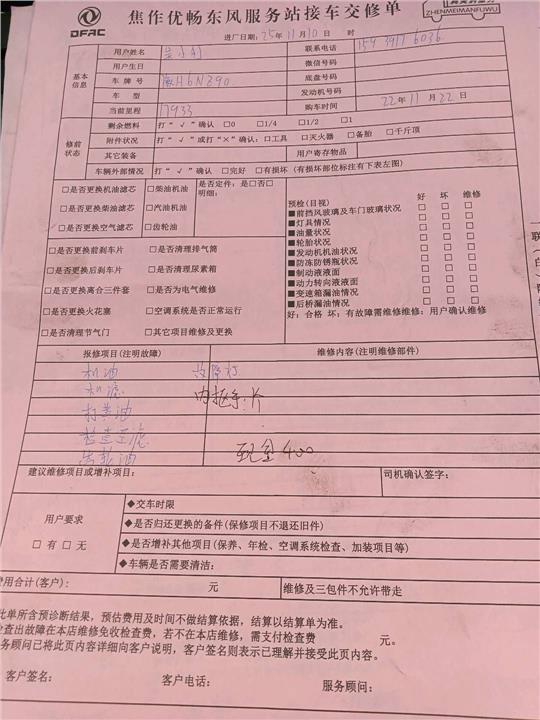 焦作优畅东风服务站接车交修单
DFAC
ZHENMEIMANFUWU
进厂日期:25年11月10日 时
基本信息
用户姓名
联系电话 159 3917 6036
用户生日
微信号码
车牌号 H6NZ90
底盘号码
车 型
发动机号码
当前里程 17933
购车时间 22年11月22日
修前状态
剩余燃料 打“√”确认 □0 □1/4 □1/2 □1
附件状况 打“√”或打“×”确认:□工具 □灭火器 □备胎 □千斤顶
其它装备
用户寄存物品
车辆外部情况 打“√”确认 □完好 □有损坏(有损坏部位标注有下表左图)
□是否更换机油滤芯 □柴油机油
□是否更换柴油滤芯 □汽油机油
□是否更换空气滤芯 □齿轮油
是否定件:是□否□
明细:
□是否更换前刹车片 □是否清理排气筒
□是否更换后刹车片 □是否清理尿素箱
□是否更换离合三件套 □是否为电气维修
□是否更换火花塞 □空调系统是否正常运行
□是否清理节气门 □其它项目维修及更换
预检(目视) 好 坏 维修
■前挡风玻璃及车门玻璃状况 □ □ □
■灯具情况 □ □ □
■油量状况 □ □ □
■轮胎状况 □ □ □
■发动机机油状况 □ □ □
■防冻防锈瓶状况 □ □ □
■制动液液面 □ □ □
■动力转向液液面 □ □ □
■变速箱漏油情况 □ □ □
■后桥漏油情况 □ □ □
好:合格 坏:有故障需维修维修:用户确认维修
报修项目(注明故障) 维修内容(注明维修部件)
机油 故障灯
机滤 内抠手:片
打黄油
检查三滤
齿轮油 现金400
建议维修项目或增补项目:
司机确认签字:
用户要求
□有 □无
◆交车时限
◆是否归还更换的备件(保修项目不退还旧件)
◆是否增补其他项目(保养、年检、空调系统检查、加装项目等)
◆车辆是否需要清洁:
费用合计(客户): 元
维修及三包件不允许带走
此单所含预诊断结果,预估费用及时间不做结算依据,结算以结算单为准。
检查出故障在本店维修免收检查费,若不在本店维修,需支付检查费 元。
服务顾问已将此页内容详细向客户说明,客户签名则表示已理解并接受此页内容。
客户签名: 客户电话: 服务顾问: